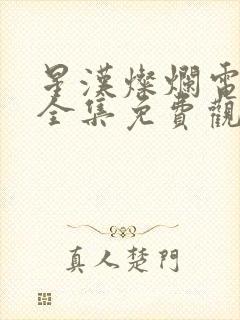 星漢燦爛電
全集免費觀
真人楚門